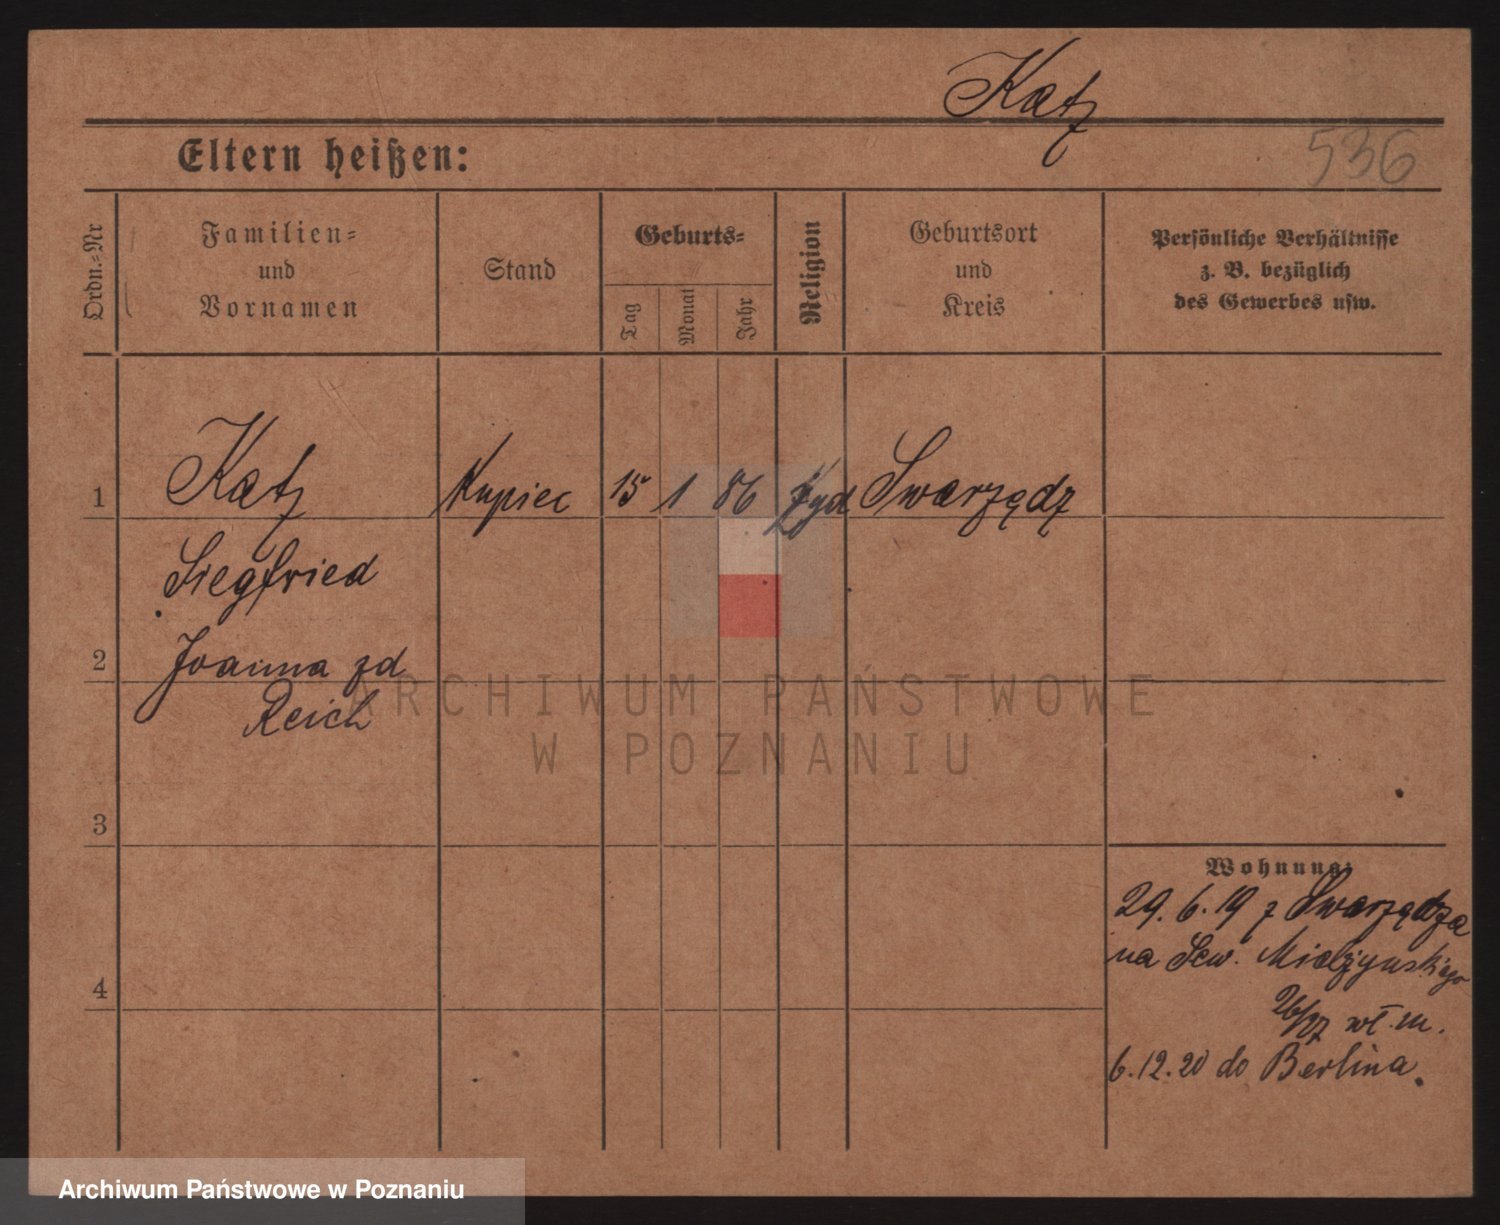 Katz
Eltern heißen:
536
Ordn.-Nr
Familien-
und
Vornamen
Stand
Geburts-
Tag
Monat
Jahr
Religion
Geburtsort
und
Kreis
Persönliche Verhältnisse
z. B. bezüglich
des Gewerbes usw.
1 Katz Kupiec 15 1 86 żyd Swarzędz
Siegfried
2 Joanna zd
Reich
ARCHIWUM PAŃSTWOWE
W POZNANIU
3
Wohnung:
29.6.19 z Swarzędza
na Sew. Mielżyńskiego
26/27 wł. m.
4
6.12.20 do Berlina.
Archiwum Państwowe w Poznaniu